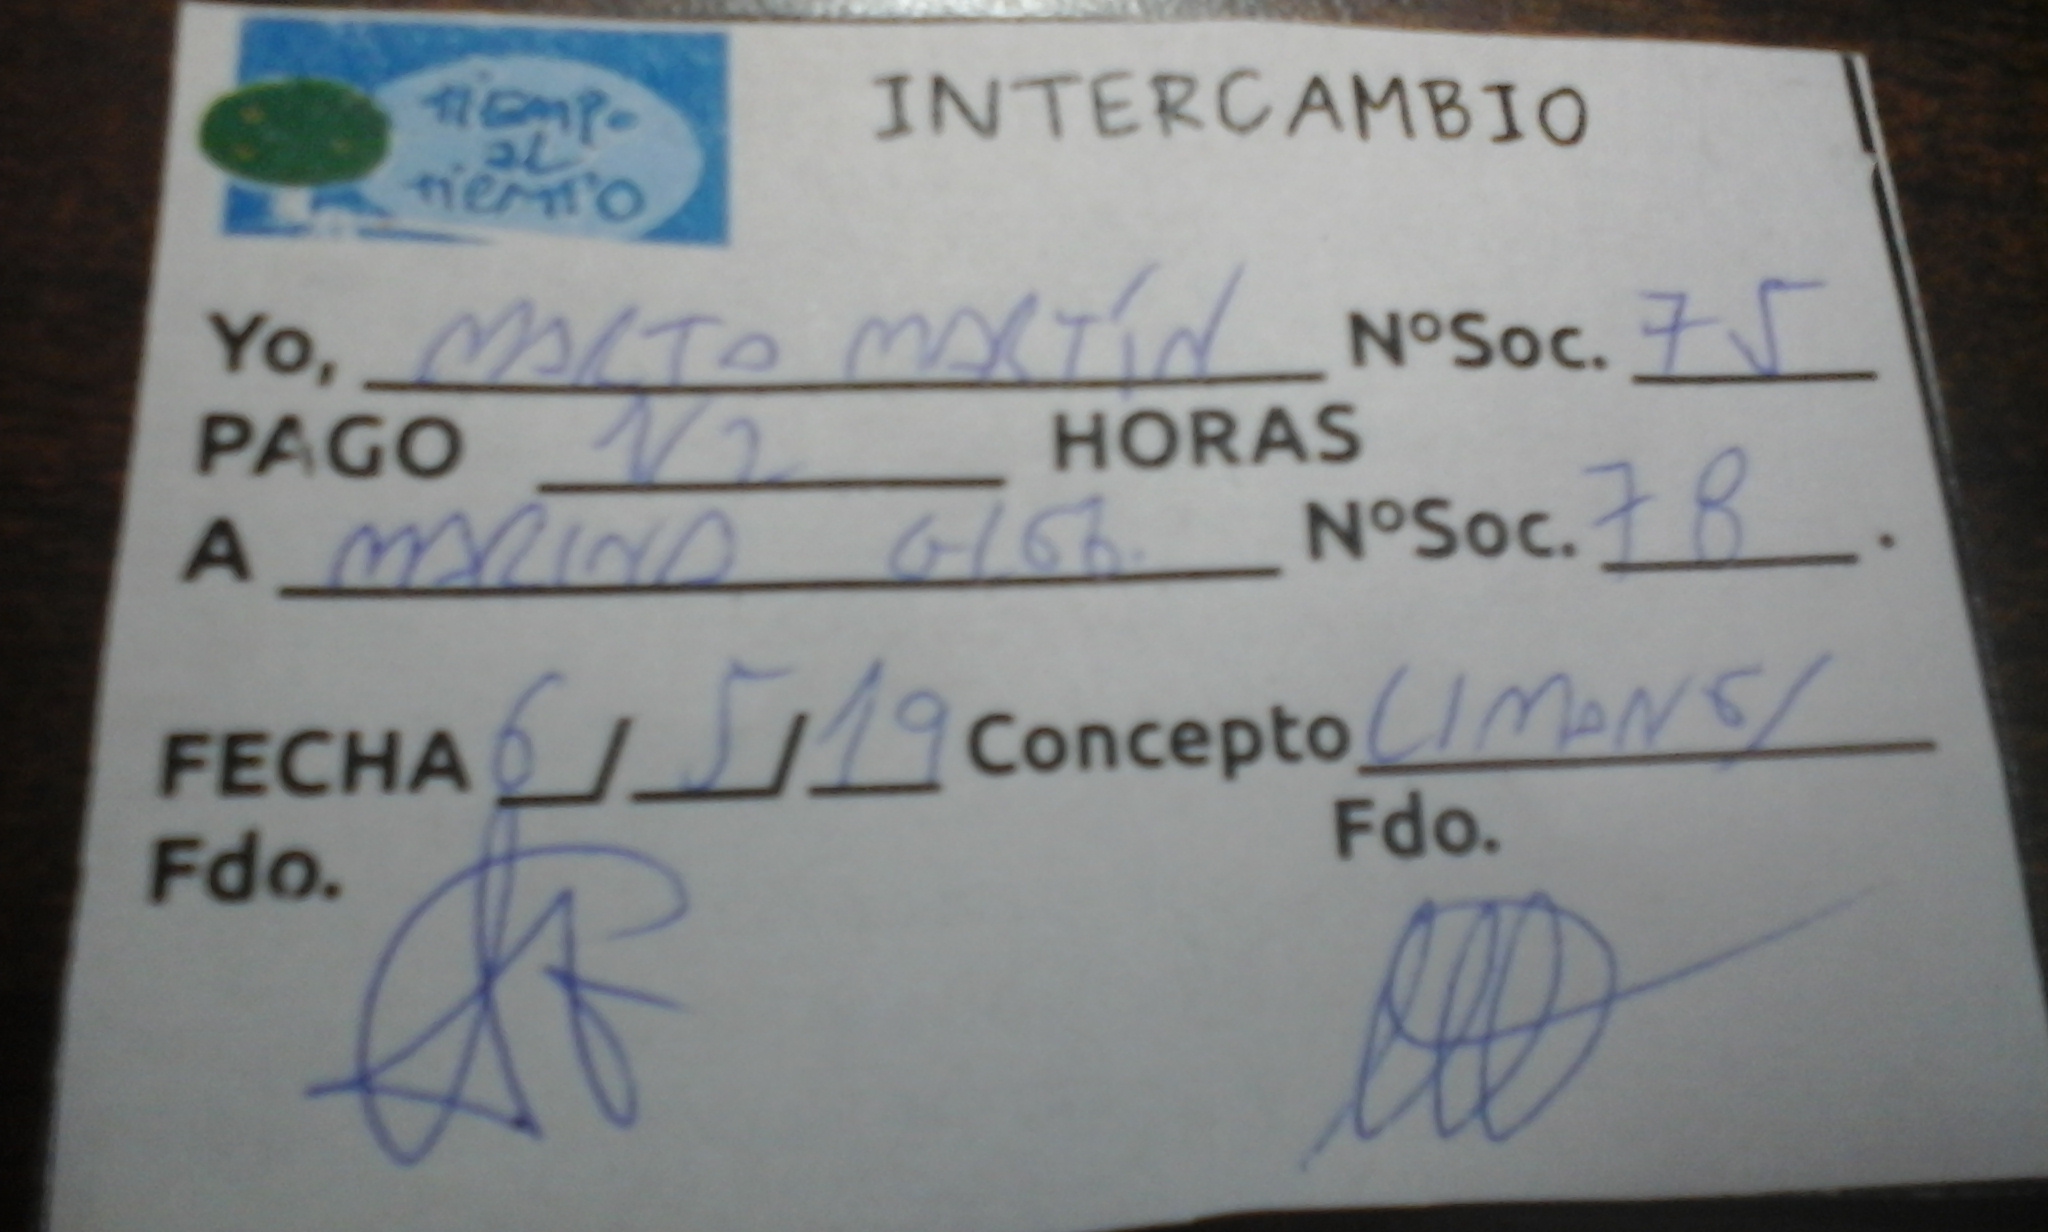 tiempo
al
tiempo
INTERCAMBIO
Yo, MARTA MARTÍN NºSoc. 75
PAGO 1/2 HORAS
A MARINA NºSoc. 78.
FECHA 6/5/19 Concepto LIMONES
Fdo. Fdo.